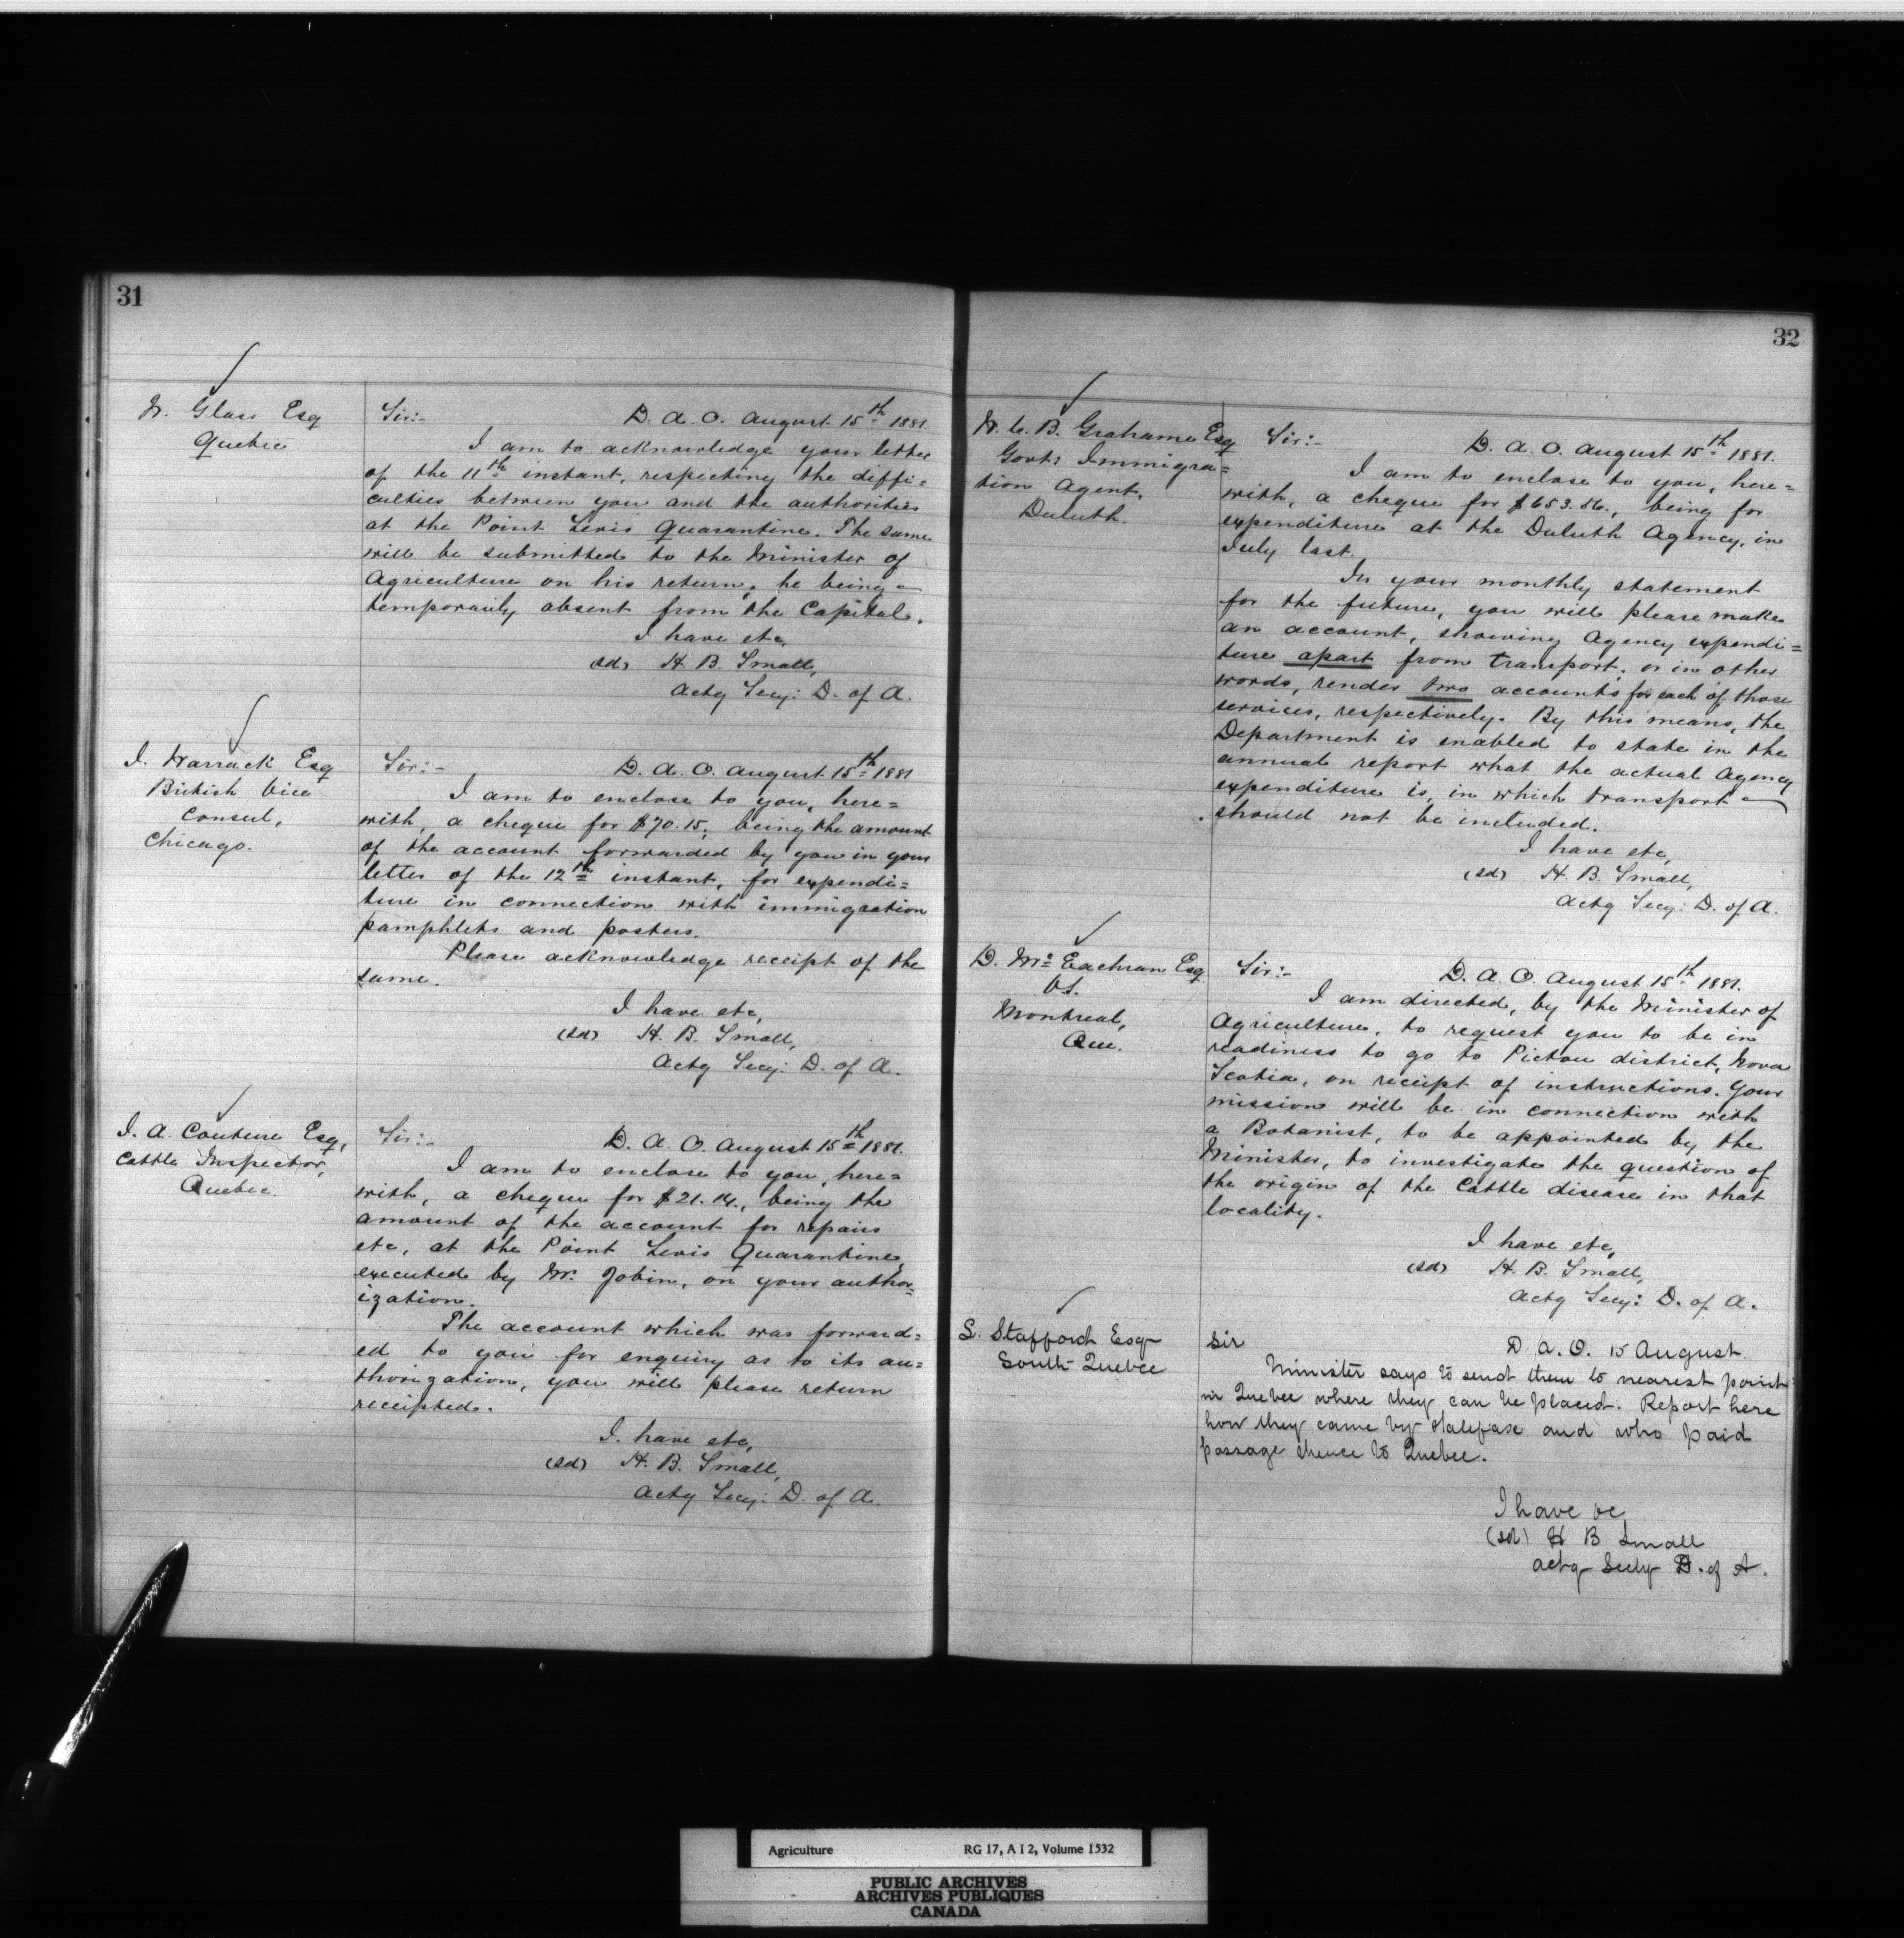 31
W. Glass Esq
Quebec
Sir:- D. A. O. August 15th 1881.
I am to acknowledge your letter
of the 11th instant, respecting the diffi=
culties between you and the authorities
at the Point Levis Quarantine. The same
will be submitted to the Minister of
Agriculture on his return, he being
temporarily absent from the Capital.
I have etc,
(sd) H. B. Small,
Actg Secy: D. of A.
J. Warrack Esq
British Vice
Consul,
Chicago.
Sir:- D. A. O. August 15th 1881
I am to enclose to you, here=
with, a cheque for $70.15, being the amount
of the account forwarded by you in your
letter of the 12th instant, for expendi=
ture in connection with immigration
pamphlets and posters.
Please acknowledge receipt of the
same.
I have etc,
(sd) H. B. Small,
Actg Secy: D. of A.
J. A. Couture Esq,
Cattle Inspector,
Quebec.
Sir:- D. A. O. August 15th 1881.
I am to enclose to you, here=
with, a cheque for $21.14., being the
amount of the account for repairs
etc, at the Point Levis Quarantine,
executed by Mr. Jobin, on your author=
ization.
The account which was forward=
ed to you for enquiry as to its au=
thorization, you will please return
receipted.
I have etc,
(sd) H. B. Small,
Actg Secy: D. of A.
32
W. C. B. Grahame Esq
Govt: Immigra=
tion Agent,
Duluth.
Sir:- D. A. O. August 15th 1881.
I am to enclose to you, here=
with, a cheque for $653.56., being for
expenditure at the Duluth Agency, in
July last.
In your monthly statement
for the future, you will please make
an account, showing Agency expendi=
ture apart from transport; or in other
words, render two accounts for each of those
services, respectively. By this means, the
Department is enabled to state in the
annual report what the actual Agency
expenditure is, in which transport
should not be included.
I have etc,
(sd) H. B. Small,
Actg Secy: D. of A.
D. Mc Eachran Esq
V.S.
Montreal,
Que.
Sir:- D. A. O. August 15th 1881.
I am directed, by the Minister of
Agriculture, to request you to be in
readiness to go to Pictou district, Nova
Scotia, on receipt of instructions. Your
mission will be in connection with
a Botanist, to be appointed by the
Minister, to investigate the question of
the origin of the Cattle disease in that
locality.
I have etc,
(sd) H. B. Small,
Actg Secy: D. of A.
L. Stafford Esq
South Quebec
Sir D. A. O. 15 August
Minister says to send them to nearest point
in Quebec where they can be placed. Report here
how they came by Halifax and who paid
passage thence to Quebec.
I have &c
(sd) H B Small
actg Secy D. of A.
Agriculture RG 17, A I 2, Volume 1532
PUBLIC ARCHIVES
ARCHIVES PUBLIQUES
CANADA